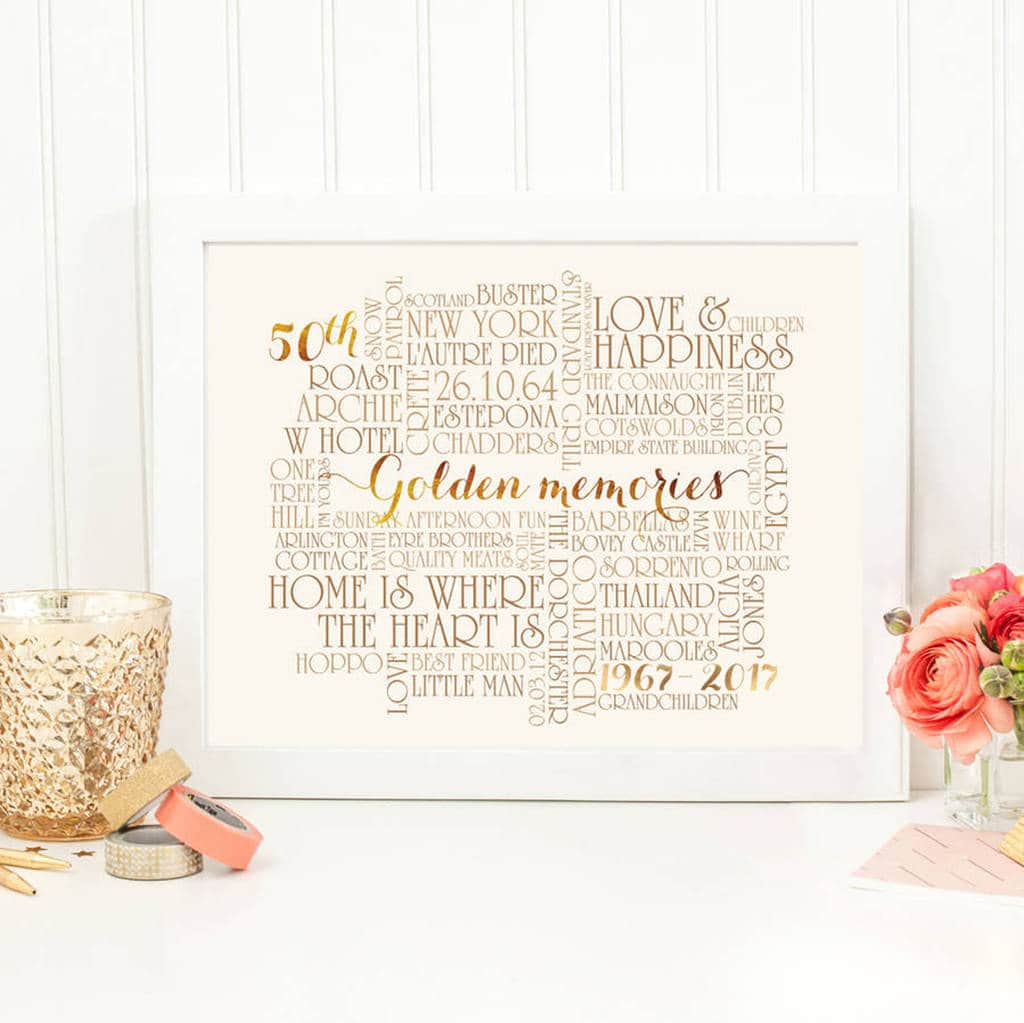 50th
SNOW
PATROL
SCOTLAND BUSTER
NEW YORK
L'AUTRE PIED
ROAST
ARCHIE
W HOTEL
CRETE
26.10.64
ESTEPONA
CHADDERS
STANDARD GRILL
LOVE &
CHILDREN
HAPPINESS
THE CONNAUGHT
MALMAISON
COTSWOLDS
EMPIRE STATE BUILDING
NOBU
DUBLIN
LET
HER
GO
CAIRO
EGYPT
ONE
TREE
HILL
I'M YOURS
Golden memories
SUNDAY AFTERNOON FUN
ARLINGTON
COTTAGE
BATH
EYRE BROTHERS
QUALITY MEATS
SOUL
MATE
THE DORCHESTER
BARBELLAS
BOVEY CASTLE
MAZE
WINE
WHARF
HOME IS WHERE
THE HEART IS
SORRENTO
ROLLING
THAILAND
HUNGARY
MAROOLES
VICTIV
JONES
ADRIATICO
HOPPO
LOVE
BEST FRIEND
LITTLE MAN
02.03.12
1967 - 2017
GRANDCHILDREN